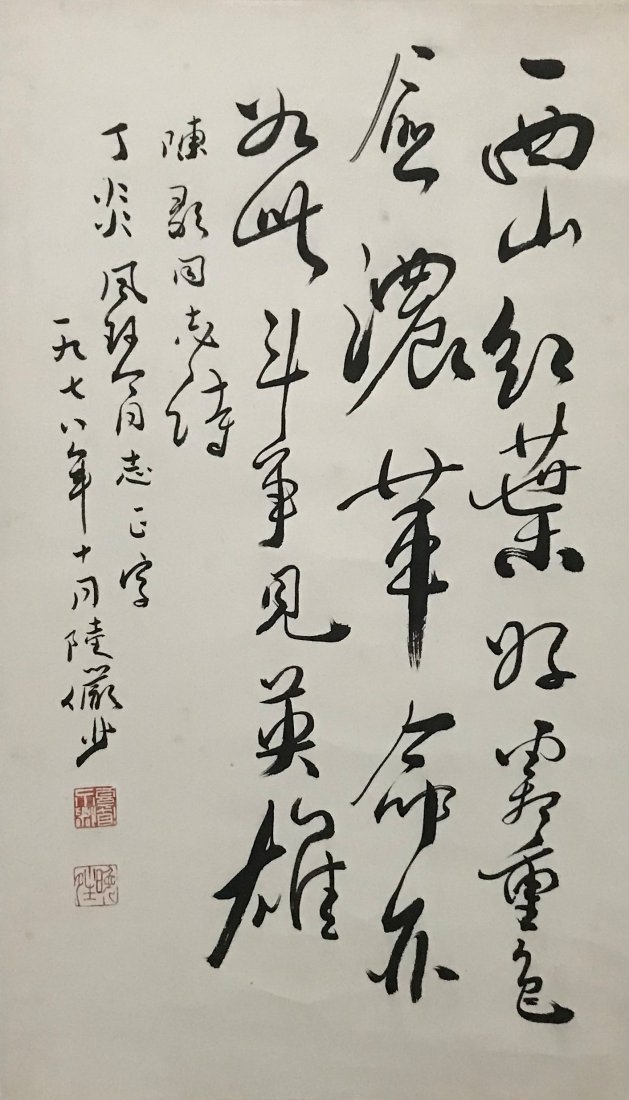 西山红葉好霜重色
愈濃革命亦
如此斗争見英雄
陳毅同志詩
丁炎同志正字
一九七八年十月陸儼少